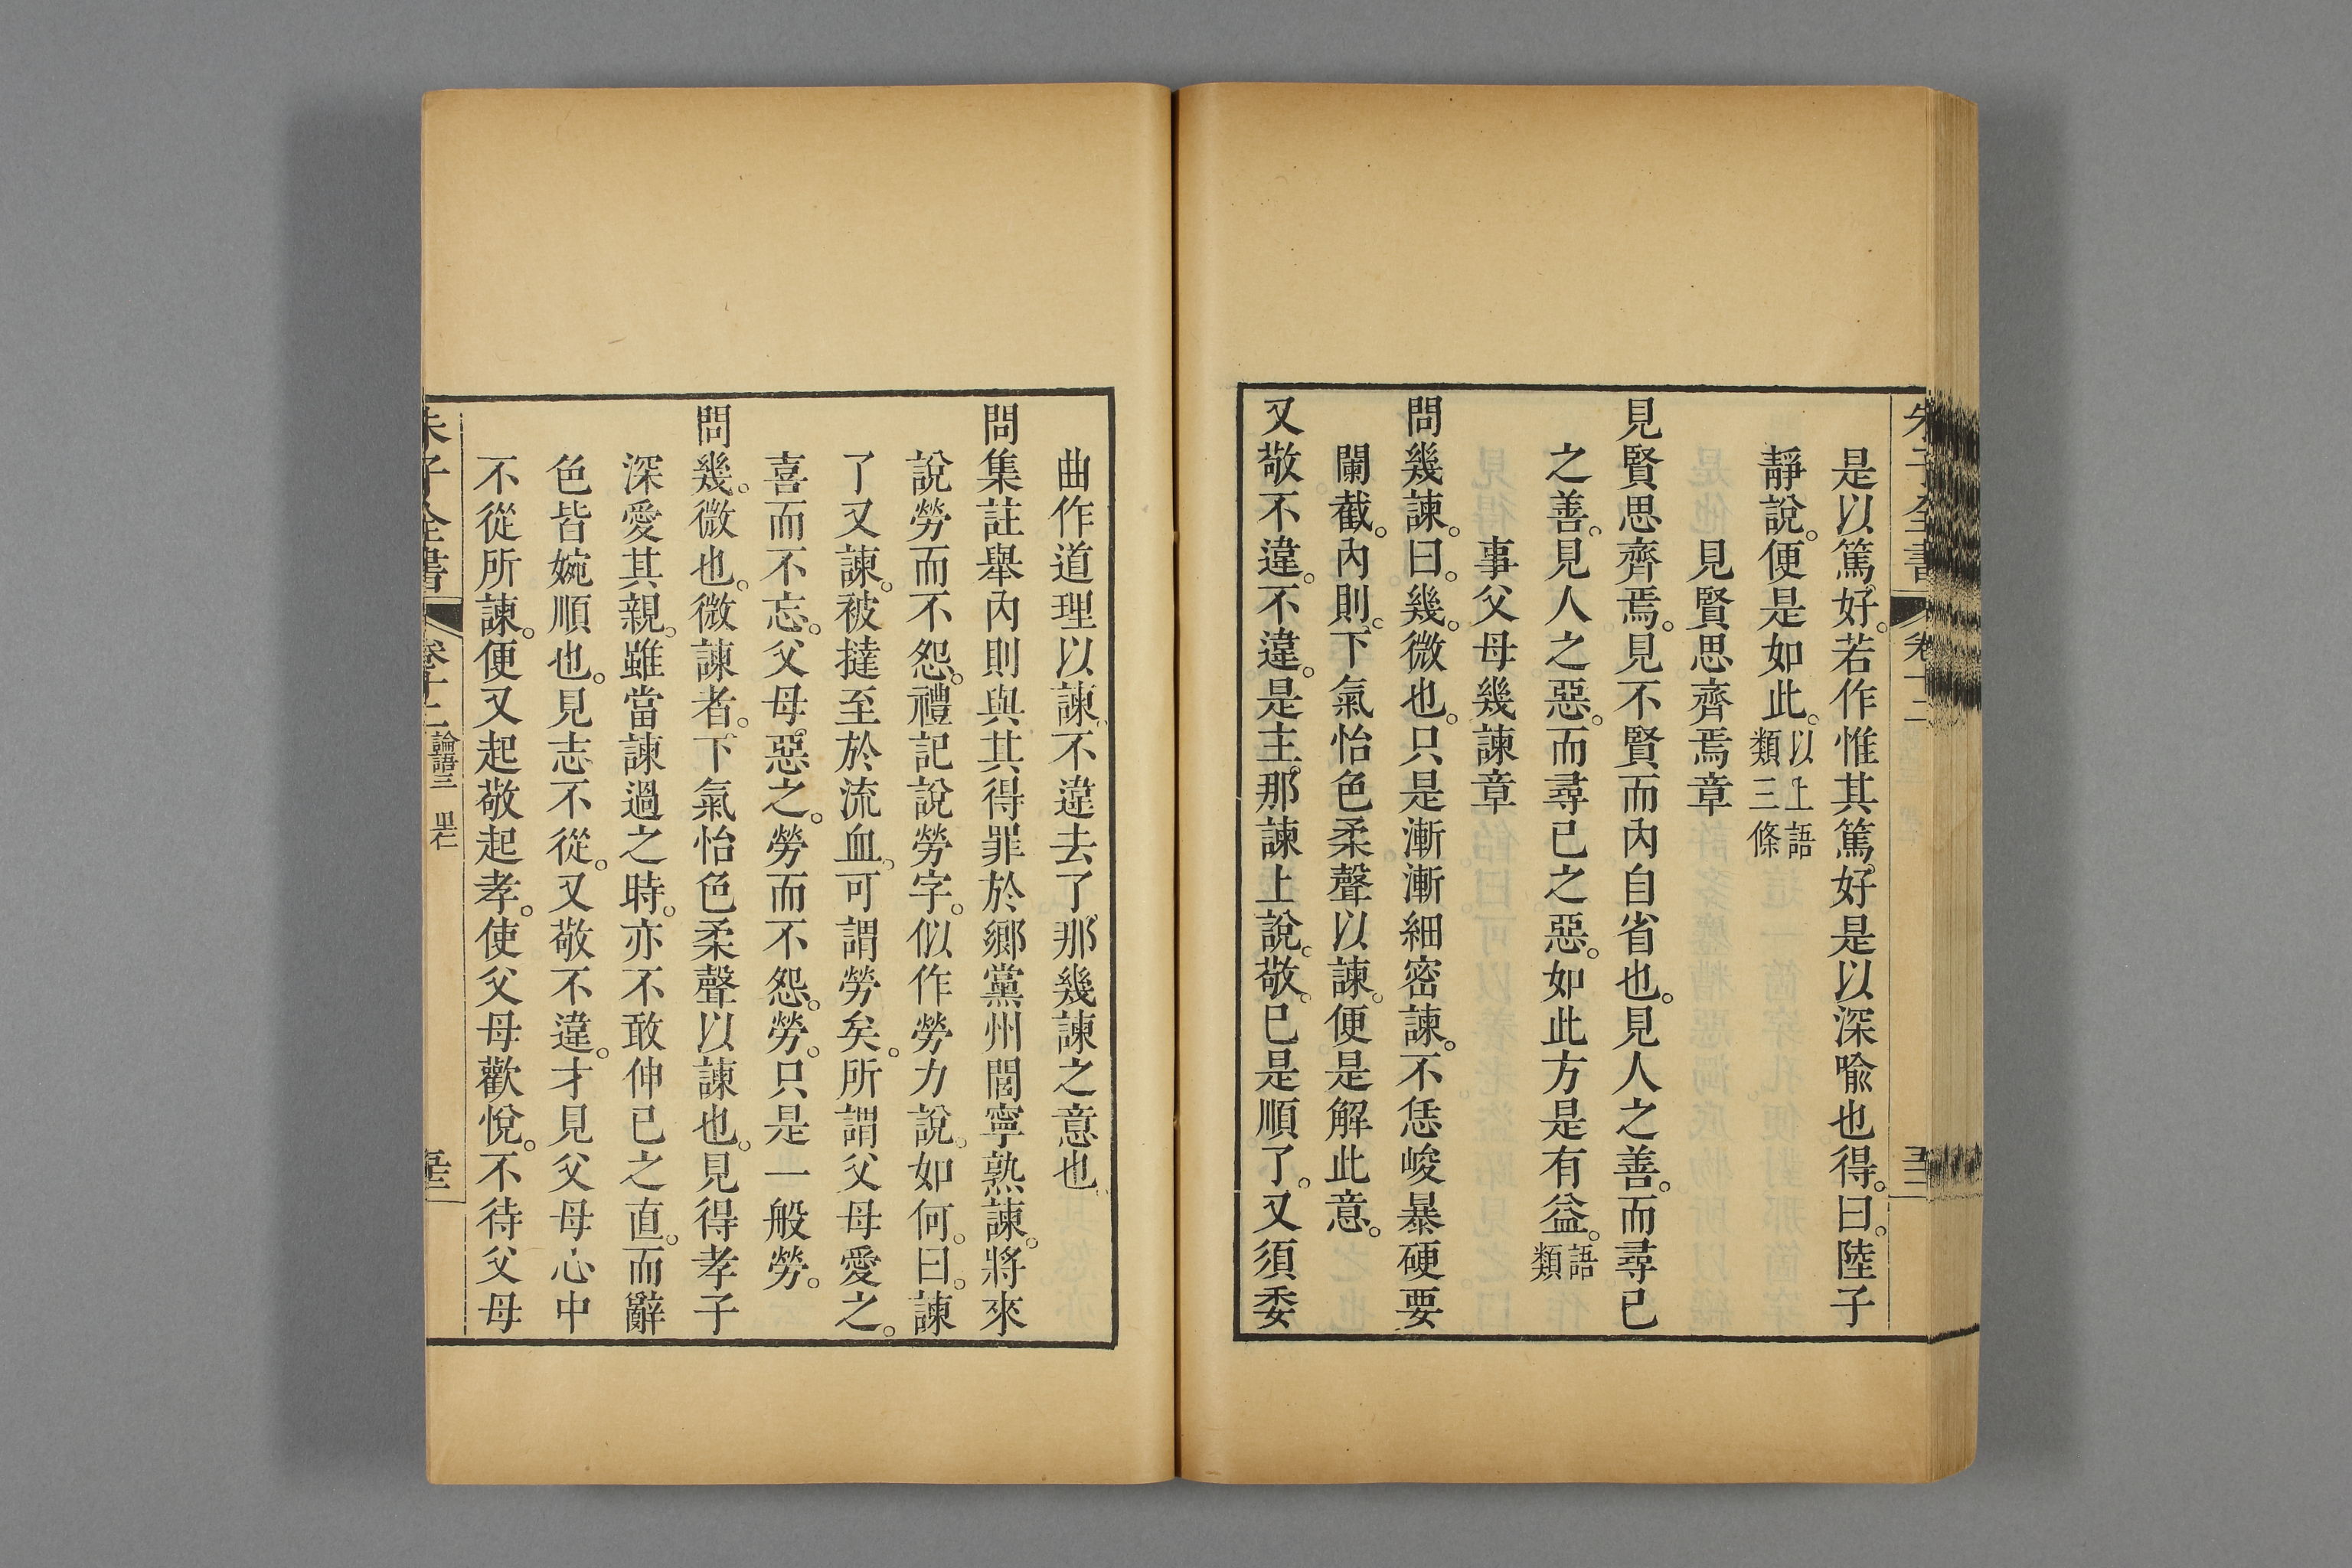 朱子全書 卷十二
是以篤好。若作惟其篤好是以深喩也得。曰。陸子
靜說。便是如此。以上語類三條
見賢思齊焉章
見賢思齊焉。見不賢而內自省也。見人之善。而尋己
之善。見人之惡。而尋己之惡。如此方是有益。語類
事父母幾諫章
問幾諫。曰。幾。微也。只是漸漸細密諫。不恁峻暴硬要
闌截。內則。下氣怡色柔聲以諫。便是解此意。
又敬不違。不違。是主那諫上說。敬。已是順了。又須委
曲作道理以諫。不違去了那幾諫之意也。
問集註舉內則與其得罪於鄉黨州閭寧熟諫。將來
說勞而不怨。禮記說勞字。似作勞力說。如何。曰。諫
了又諫。被撻至於流血。可謂勞矣。所謂父母愛之。
喜而不忘。父母惡之。勞而不怨。勞。只是一般勞。
問幾。微也。微諫者。下氣怡色柔聲以諫也。見得孝子
深愛其親。雖當諫過之時。亦不敢伸己之直。而辭
色皆婉順也。見志不從。又敬不違。才見父母心中
不從所諫。便又起敬起孝。使父母歡悅。不待父母
朱子全書 卷十二 論語三 里仁